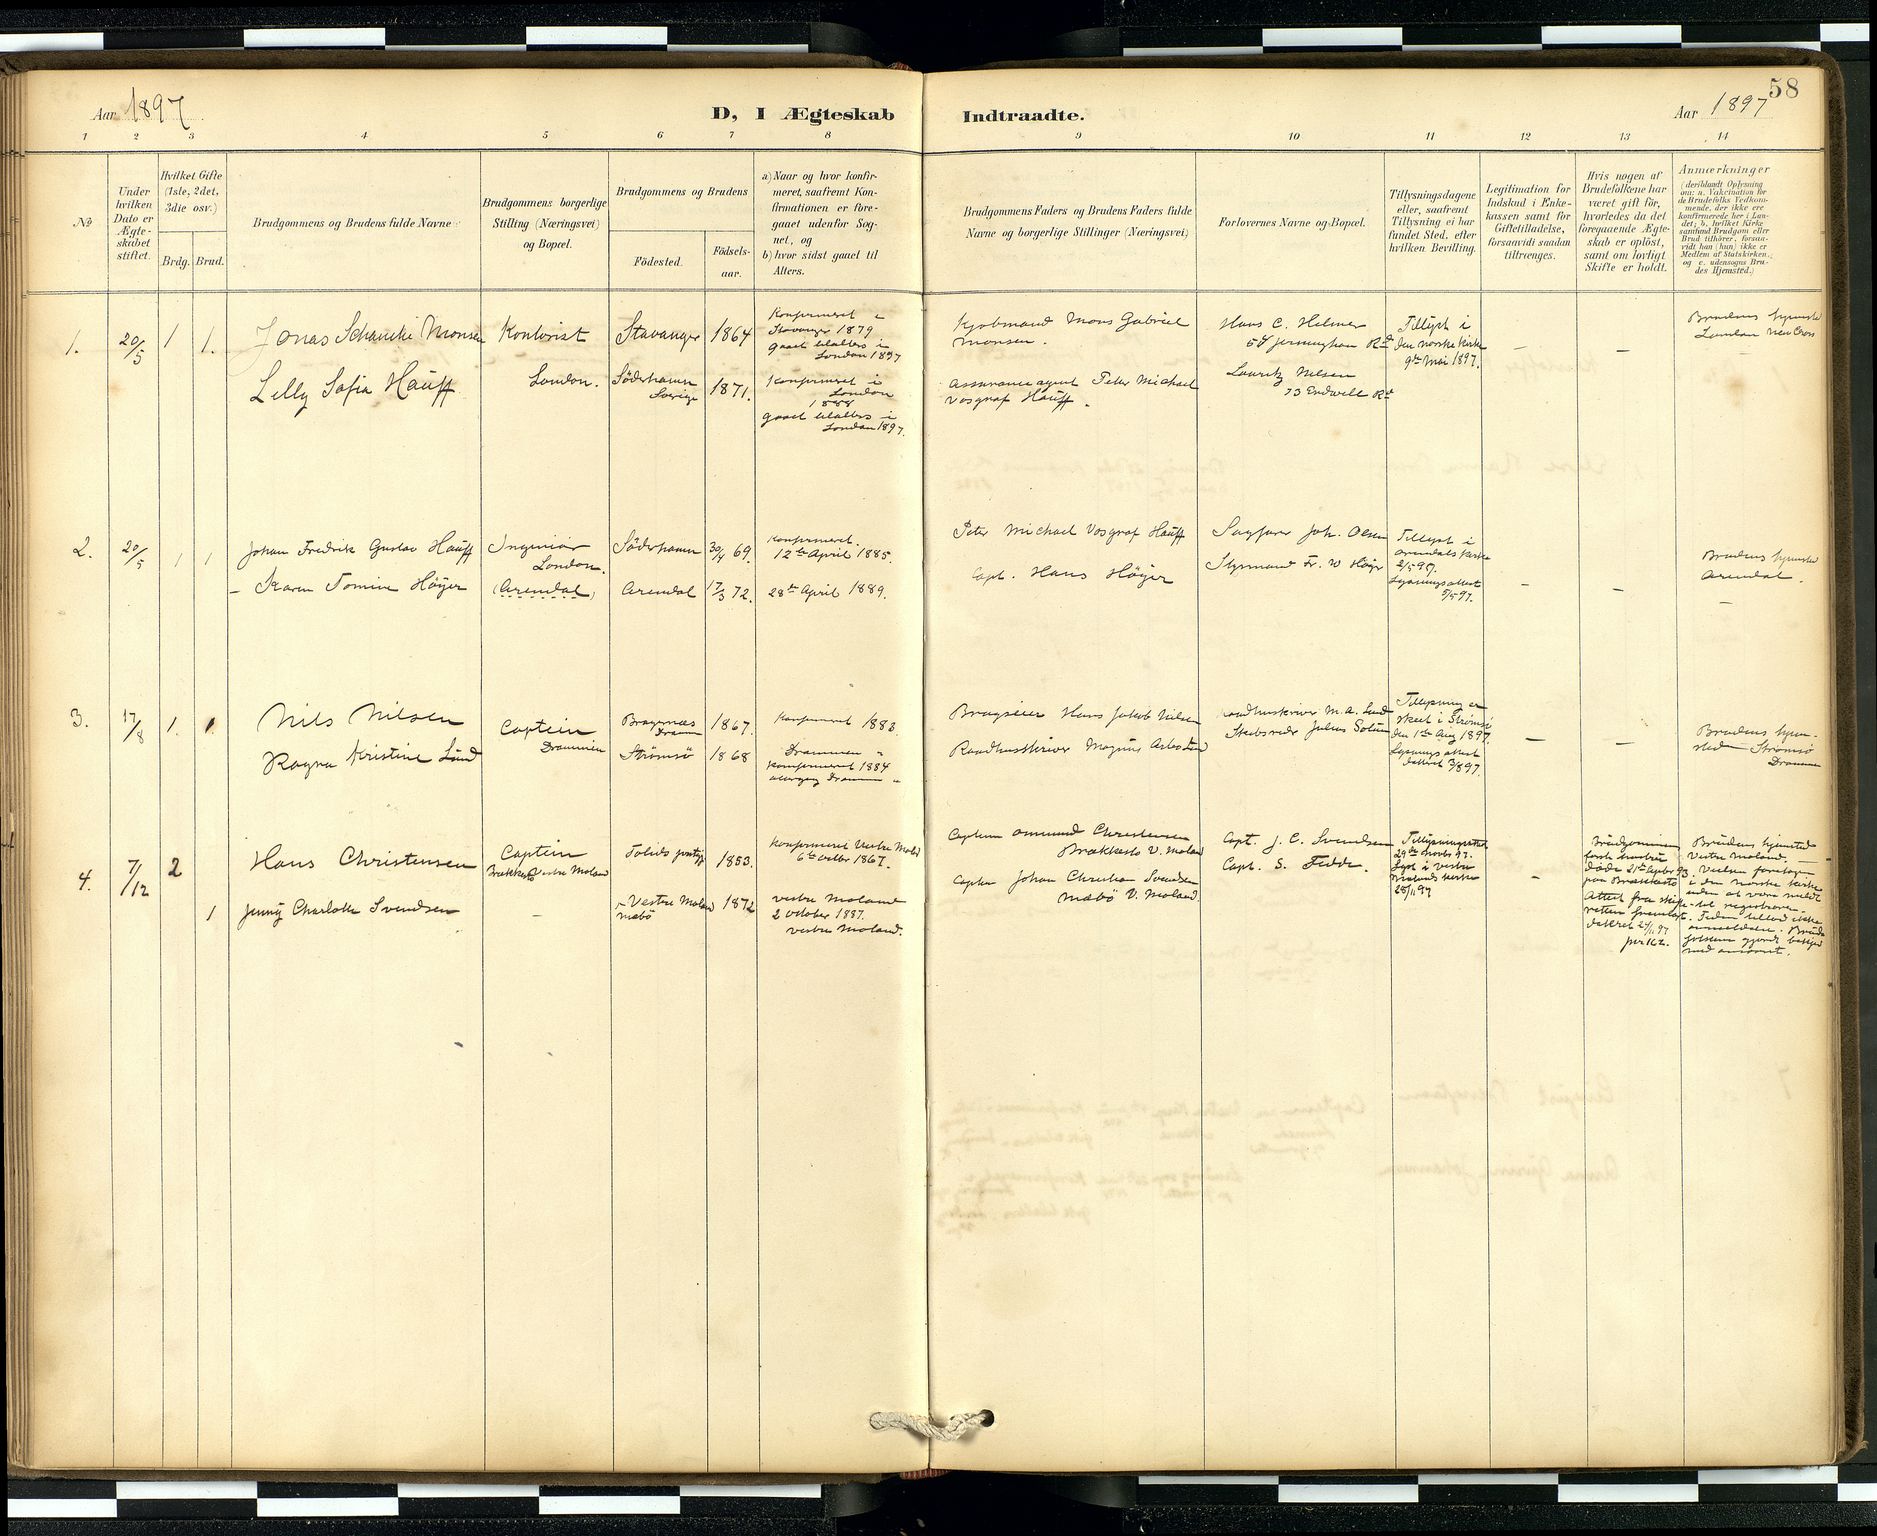 58
Aar 1897
D, I Ægteskab Indtraadte.
Aar 1897
1 2 3 4 5 6 7 8 9 10 11 12 13 14
No
Under
hvilken
Dato er
Ægte-
skabet
stiftet.
Hvilket Gifte
(1ste, 2det,
3die osv.)
Brdg. Brud.
Brudgommens og Brudens fulde Navne
Brudgommens borgerlige
Stilling (Næringsvei)
og Bopæl.
Brudgommens og Brudens
Födested.
Födsels-
aar.
a) Naar og hvor konfir-
meret, saafremt Kon-
firmationen er fore-
gaaet udenfor Sog-
net, og
b) hvor sidst gaaet til
Alters.
Brudgommens Faders og Brudens Faders fulde
Navne og borgerlige Stillinger (Næringsvei)
Forlovernes Navne og Bopæl.
Tillysningsdagene
eller, saafremt
Tillysning ei har
fundet Sted, efter
hvilken Bevilling.
Legitimation for
Indskud i Enke-
kassen samt for
Giftetilladelse,
forsaavidt saadan
tiltrænges.
Hvis nogen af
Brudefolkene har
været gift för,
hvorledes da det
foregaaende Ægte-
skab er oplöst,
samt om lovligt
Skifte er holdt.
Anmærkninger
(deriblandt Oplysning
om: a. Vaccination for
de Brudefolks Vedkom-
mende, der ikke ere
konfirmerede her i Lan-
det; b. hvilket Kirke-
samfund Brudgom eller
Brud tilhörer, forsaa-
vidt han (hun) ikke er
Medlem af Statskirken,
og c. udensogns Bru-
des Hjemsted.)
1. 20/5 1 1.
Jonas Schancke Monsen
Lelly Sofia Hauff
Kontorist
London.
Stavanger 1864
Söderhamn
Sverige 1871.
Konfirmeret i
Stavanger 1879
gaaet til alters i
London 1897
Konfirmeret i
London
1888
gaaet til alters i
London 1897.
Kjøbmand Mons Gabriel
Monsen.
Assuranceagent Peter Michael
Vosgraf Hauff.
Hans C. Helmer
54 Jerningham Rd
Lauritz Nelsen
73 Endwell Rd
Tillyst i
den norske kirke
9de Mai 1897.
–
–
Brudens hjemsted
London New Cross
2. 20/5 1 1
Johan Fredrik Gustav Hauff
– Karen Tomine Höyer
Ingeniör
London.
(Arendal)
Söderhamn 30/4 69.
Arendal 17/3 72.
Konfirmeret.
12te April 1885.
28de April 1889.
Peter Michael Vosgraf Hauff
Capt. Hans Höyer
Sagfører Joh. Olsen
Styrmand Fr. W Höyer
Tillyst i
Arendals kirke
2/5 97.
Lysningsattest
5/5 97.
–
–
Brudens hjemsted
Arendal.
–
3. 17/8 1. 1
Nils Nilsen
Ragna Kristine Lund
Captein
Drammen
Bragernæs
Dramm 1867.
Strømsö 1868
Konfirmeret 1883.
Drammen
Konfirmeret 1884
Hans Jakob Nielsen
Raadhusskriver Magnus Lund
Raadhusskriver M. A. Lund
Skibsreder Julius Solum
Tillysning er
skeet i Strømsö
den 1ste Aug 1897.
Lysningsattest
dateret 3/8 97.
–
–
Brudens hjem-
sted Strömsö
Drammen
4. 7/12 2
1
Hans Christensen
Jenny Charlotte Svendsen
Captein
Brækkestö Vestre Moland
–
1853.
Vestre Moland
Mæbö 1872
Konfirmeret Vestre Moland
6te octbr 1867.
Vestre Moland
2 October 1887.
Vestre Moland.
Captein Omund Christensen
Brækkestö V. Moland
Captein Johan Christian Svendsen
Mæbö V. Moland
Capt. J. C. Svendsen
Capt. S. Fedde.
Tillysningsattest
29de Novbr 97.
Lyst i Vestre
Molands kirke
28/11 97
–
Brudgommens
første hustru
døde 21de Septbr 93
paa Brækkestö
Attest fra skifte-
retten fremlagt.
dateret 27/11 97
Brudens hjemsted
Vestre Moland. –
Vielsen foretagen
i den norske kirke
uden at være meldt
til registraren.